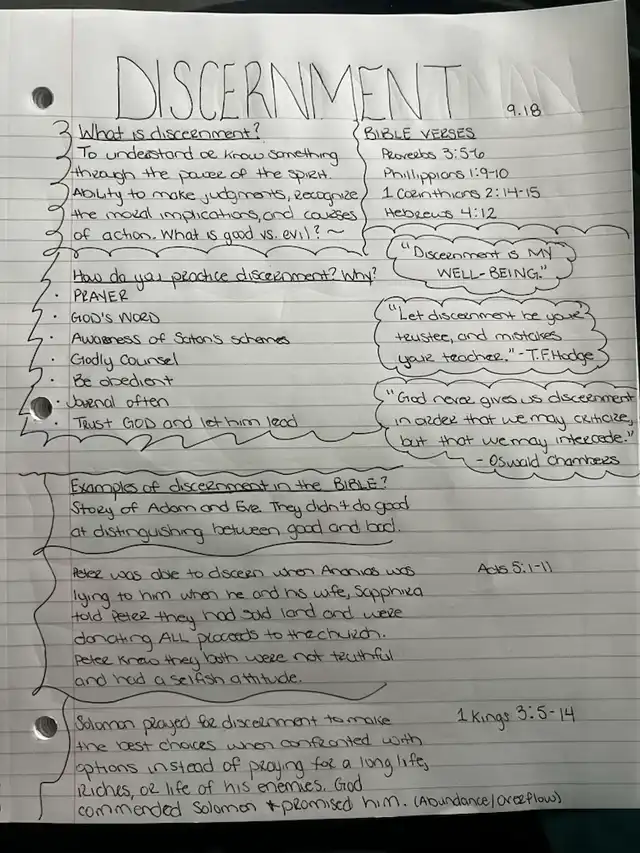 DISCERNMENT
9.18
What is discernment?
To understand or know something
through the power of the spirit.
Ability to make judgments, recognize
the moral implications, and courses
of action. What is good vs. evil? ~
BIBLE VERSES
Proverbs 3:5-6
Phillippians 1:9-10
1 Corinthians 2:14-15
Hebrews 4:12
"Discernment is MY
WELL-BEING."
"Let discernment be your
trustee, and mistakes
your teacher." - T.F. Hodge
"God never gives us discernment
in order that we may criticize,
but that we may intercede."
- Oswald Chambers
How do you practice discernment? Why?
· PRAYER
· GOD'S WORD
· Awareness of Satan's schemes
· Godly Counsel
· Be obedient
· Journal often
· Trust GOD and let him lead
Examples of discernment in the BIBLE?
Story of Adam and Eve. They didn't do good
at distinguishing between good and bad.
Peter was able to discern when Ananias was
lying to him when he and his wife, Sapphira
told Peter they had sold land and were
donating ALL proceeds to the church.
Peter knew they both were not truthful
and had a selfish attitude.
Acts 5:1-11
Solomon prayed for discernment to make
the best choices when confronted with
options instead of praying for a long life,
riches, or life of his enemies. God
commended Solomon + promised him. (Abundance/Overflow)
1 Kings 3:5-14